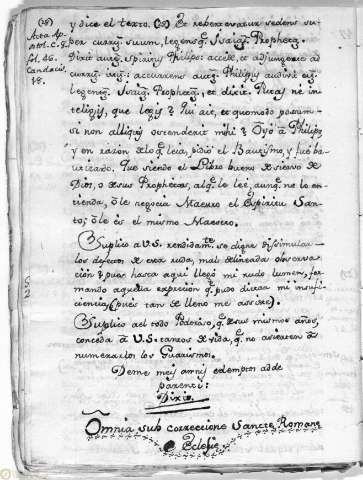 (18)
Acta Ap-
ostol. C. 8.
fol. 46.
Candacis,
18.
y dice el texto. (18) Et revertevatur sedens su-
per currum suum, legensq. Isaiam Prophetam.
Dixit autem Spiritus Philipo: accede, et adjungete ad
currum. accurrens autem Philipus audivit eum
legentem Isaiam Prophetam, et dixit: Putas ne in-
teligis, que legis? Qui ait, et quomodo possum,
si non aliquis ostenderit mihi? Oyó a Philipo
y en razón de lo q. leia, pidió el Bautismo, y fué bau-
tizado. Que siendo el Libro bueno de siervo de
Dios, o de sus Prophetas, al q. lo leé, aunq. no lo en-
tienda, ô le negocia Maestro el Espiritu San-
to; ô le és el mismo Maestro.
Suplico a V.S. rendidamte. se digne disimular
los defectos de esta ruda, mal delineada observa-
ción; pues hasta aquí llegó mi rudo lumen, for-
mando aquella expreción q. pudo dictar mi insufi-
ciencia (pues tan de lleno me assiste).
Suplico a el todo Poderoso, q. de sus mismos años,
conceda a V.S. tantos de vida, q. no acierten a
numerarlos los Guarismos.
Deme meis annis et demptos adde
parenti:
Dixi.
Omnia sub correccione Sancte Romane
Eclesie
52